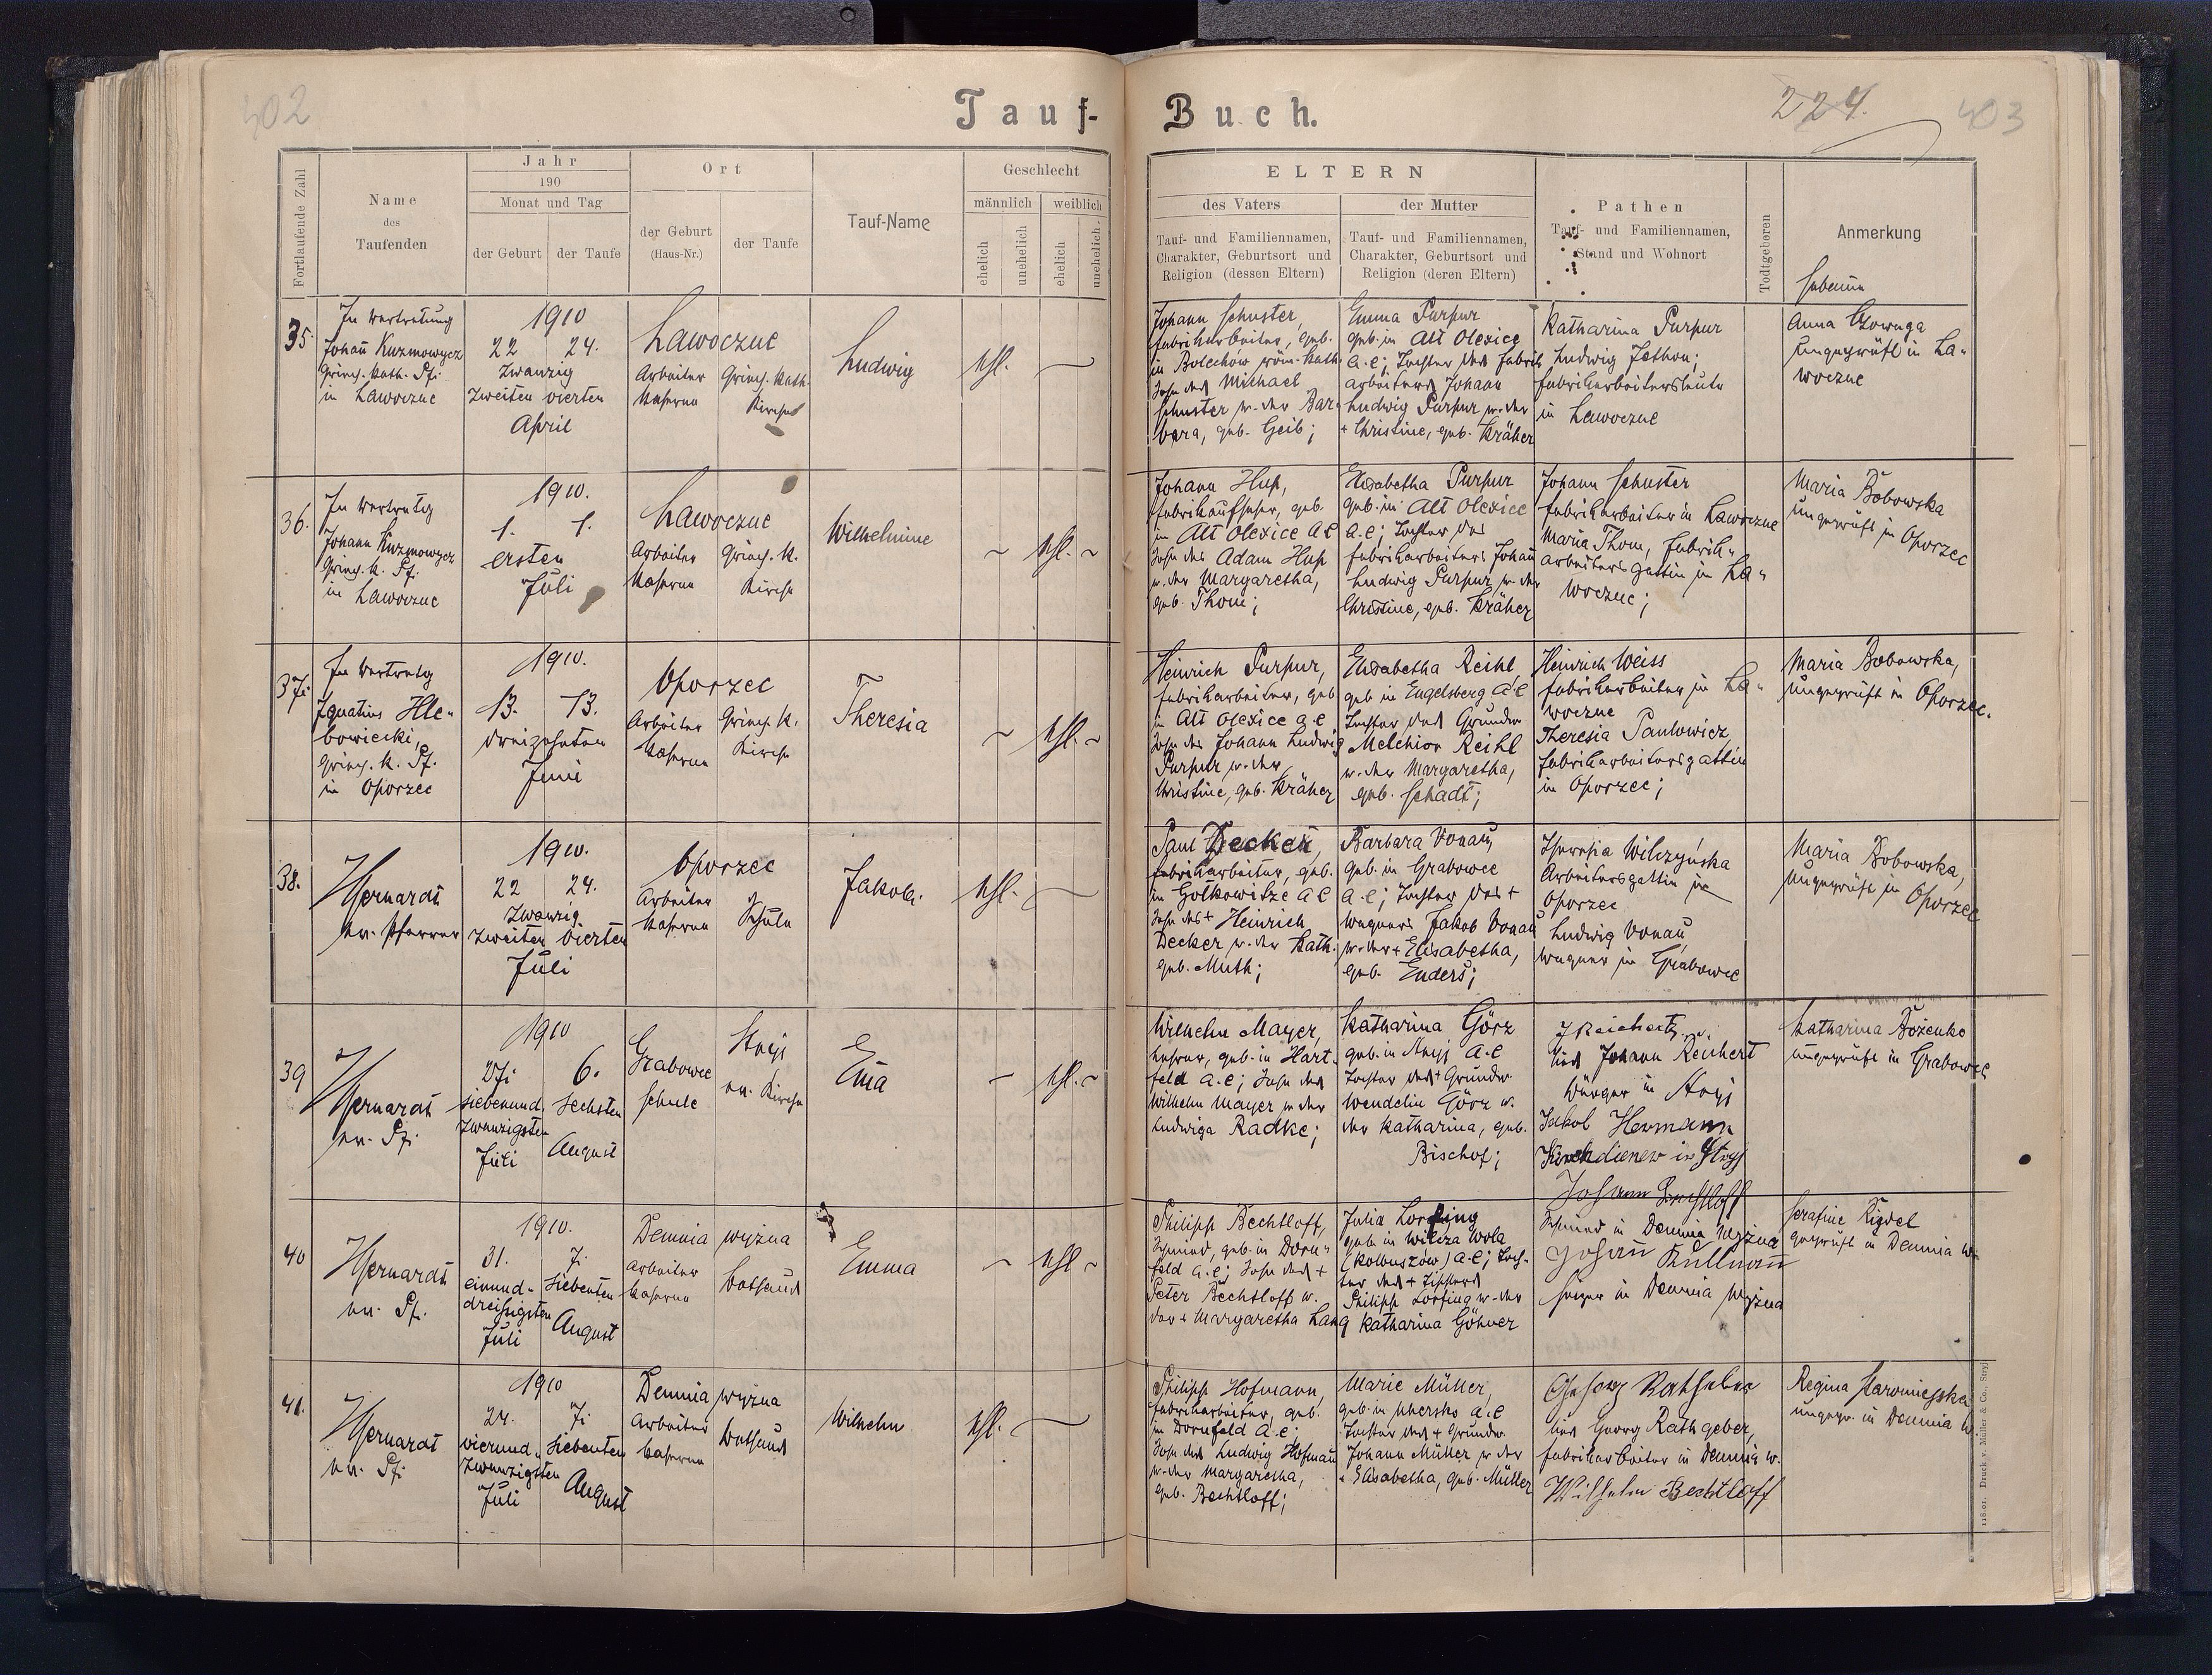 402
Tauf-Buch.
224.
403
Fortlaufende Zahl
Name
des
Taufenden
Jahr
190
Monat und Tag
der Geburt
der Taufe
Ort
der Geburt
(Haus-Nr.)
der Taufe
Tauf-Name
Geschlecht
männlich
weiblich
ehelich
unehelich
ehelich
unehelich.
ELTERN
des Vaters
Tauf- und Familiennamen,
Charakter, Geburtsort und
Religion (dessen Eltern)
der Mutter
Tauf- und Familiennamen,
Charakter, Geburtsort und
Religion (deren Eltern)
Pathen
Tauf- und Familiennamen,
Stand und Wohnort
Todtgeboren
Anmerkung
Hebamme
35.
In Vertretung
Johañ Kuzmowycz
Griech. kath. Pf.
in Lawoczne
1910
22 24.
zwanzig
zweiten vierten
April
Lawoczne
Arbeiter
Kaserne
Griech. kath.
Kirche
Ludwig
ehl.
Johann Schuster,
Fabrikarbeiter, geb.
in Bolechów röm.-kath.
Sohn des Michael
Schuster u. der Bar-
bara, geb. Geib;
Emma Purpur
geb. in Alt Olexice
A.C; Tochter des Fabrik
arbeiters Johann
Ludwig Purpur u. der
+ Christine, geb. Kräher
Katharina Purpur
Ludwig Jethon;
Fabrikarbeitersleute
in Lawoczne
Anna
ungeprüft in La-
woczne
36.
In Vertretg
Johann Kuzmowycz
Griech. k. Pf.
in Lawoczne
1910.
1. 1.
ersten
Juli
Lawoczne
Arbeiter
Kaserne
Griech. k.
Kirche
Wilhelmine
ehl.
Johann Hup,
Fabrikaufseher, geb.
in Alt Olexice A C
Sohn des Adam Hup
u. der Margaretha,
geb. Thom;
Elisabetha Purpur
geb. in Alt Olexice
A.C; Tochter des
Fabrikarbeiters Johañ
Ludwig Purpur u. der
Christine, geb. Kräher
Johann Schuster
Fabrikarbeiter in Lawoczne
Maria Thom, Fabrik-
arbeitersgattin in La-
woczne;
Maria Bobowska
ungeprüft in Oporzec
37.
In Vertretg
Ignatius Hle-
bowiecki,
Griech. k. Pf.
in Oporzec
1910.
13. 13.
dreizehnten
Juni
Oporzec
Arbeiter
Kaserne
Griech. k.
Kirche
Theresia
ehl.
Heinrich Purpur,
Fabrikarbeiter, geb
in Alt Olexice A.C
Sohn des Johann Ludwig
Purpur u. der
Christine, geb. Kräher
Elisabetha Reihl
geb in Engelsberg A.C
Tochter des Grundw
Melchior Reihl
u. der Margaretha,
geb. Schadt;
Heinrich Weiss
Fabrikarbeiter in La-
woczne
Theresia Pawlowicz,
Fabrikarbeitersgattin
in Oporzec;
Maria Bobowska,
ungeprüft in Oporzec.
38.
Hernardt
ev. Pfarrer
1910.
22 24.
zwanzig
zweiten vierten
Juli
Oporzec
Arbeiter
Kaserne
Schule
Jakob.
ehl.
Paul Decker,
Fabrikarbeiter, geb.
in Golkowitze A C
Sohn des + Heinrich
Decker u. der Kath.
geb. Muth;
Barbara Vonau,
geb. in Grabowce
A.C; Tochter des +
Wagners Jakob Vonau
u. der + Elisabetha,
geb. Enders;
Wilczyńska
Arbeitersgattin in
Oporzec
Ludwig Vonau,
Wagner in Grabowce
Maria Bobowska,
ungeprüft in Oporzec
39
Hernardt
ev. Pf.
1910
27. 6.
siebenund- sechsten
zwanzigsten
Juli August
Grabowce
Schule
Stryj
ev. Kirche
Em̃a
ehl.
Wilhelm Mayer,
Lehrer, geb. in Hart-
feld A.C; Sohn des
Wilhelm Mayer u der
Ludwiga Radke;
Katharina Görz
geb. in Stryj A.C
Tochter des + Grundw
Wendelin Görz u.
der Katharina, geb.
Bischof;
J Reichert
und Johann Reichert
Bürger in Stryj
Jakob Hermann
Kirchdiener in Stryj
Katharina Bożenko
ungeprüft in Grabowce
40
Hernardt
ev. Pf.
1910.
31. 7.
einund- siebenten
dreißigsten
Juli August
Demnia wyżna
Arbeiter
Kaserne
Bethaus
Emma
ehl
Philipp Bechtloff,
Schmied, geb. in Dorn-
feld A.C; Sohn des +
Peter Bechtloff u.
der + Margaretha Lang
Julia Lorfing
geb. in Wilcza Wola
(Kolbuszów) A.C; Toch-
ter des + Tischlers
Philipp Lorfing u. der
Katharina Göhner
Johann Bechtloff
Schmied in Demnia wyżna
Johañ Kullmañ
Heizer in Demnia wyżna
Serafine Rigdel
geprüft in Demnia w.
41.
Hernardt
ev. Pf.
1910
24. 7.
vierund- siebenten
zwanzigsten
Juli August
Demnia wyżna
Arbeiter
Kaserne
Bethaus
Wilhelm
ehl.
Philipp Hofmann,
Fabrikarbeiter, geb.
in Dornfeld A.C;
Sohn des Ludwig Hofmañ
u. der Margaretha,
geb. Bechtloff;
Marie Müller,
geb. in Uhersko A.C
Tochter des + Grundw
Johann Müller u der
+ Elisabetha, geb. Müller
Georg Rathgeber
und Georg Rathgeber,
Fabrikarbeiter in Demnia w.
Wilhelm Bechtloff
Regina
ungepr. in Demnia w
118.01. Druck v. Müller & Co. Stryj